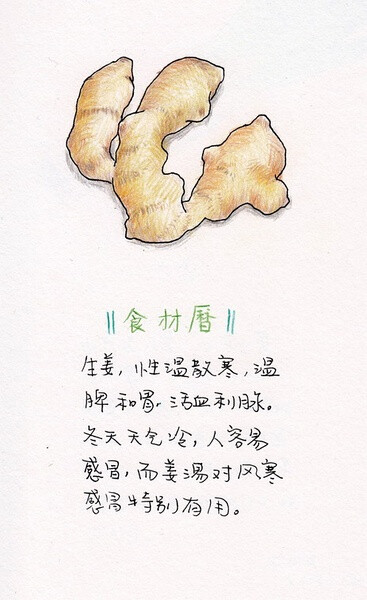 ‖食材曆‖
生姜，性温散寒，温
脾和胃，活血利脉。
冬天天气冷，人容易
感冒，而姜汤对风寒
感冒特别有用。